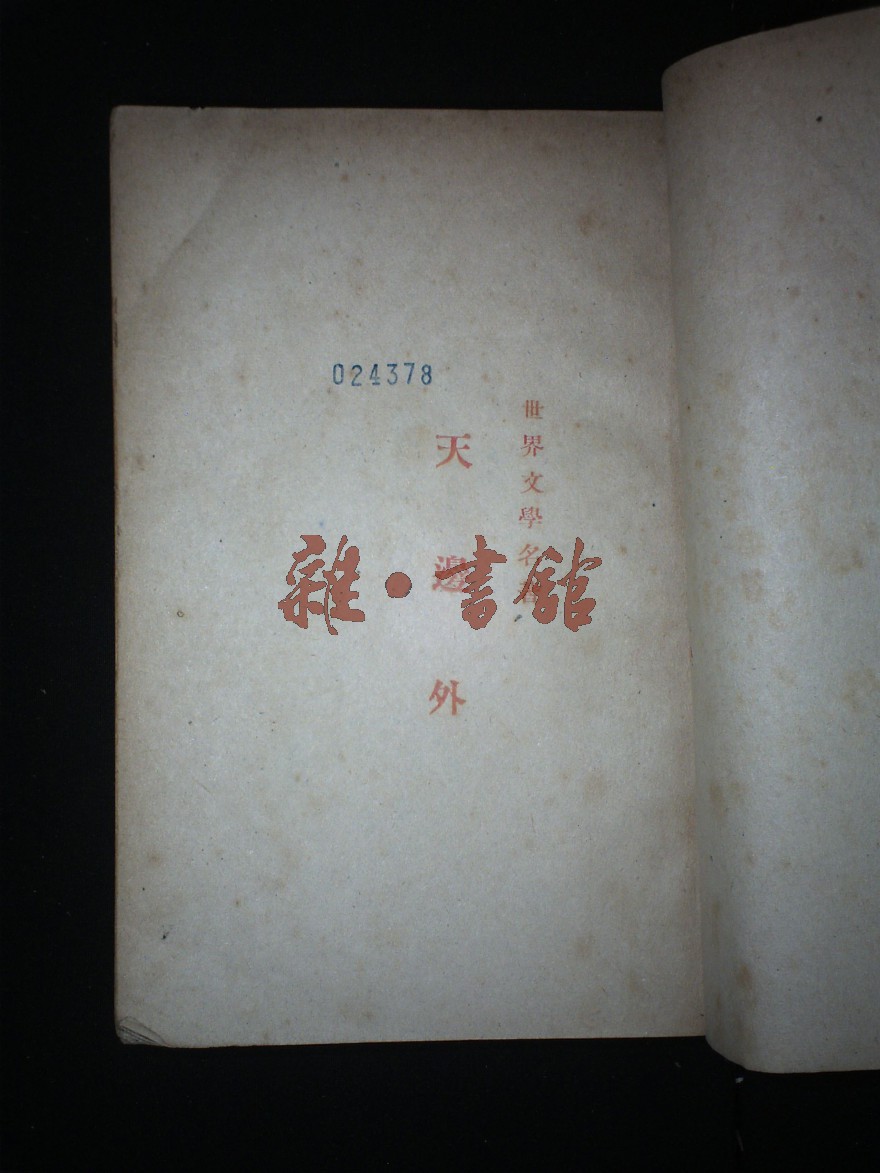 024378
世界文學名著
天邊外
雜·書館